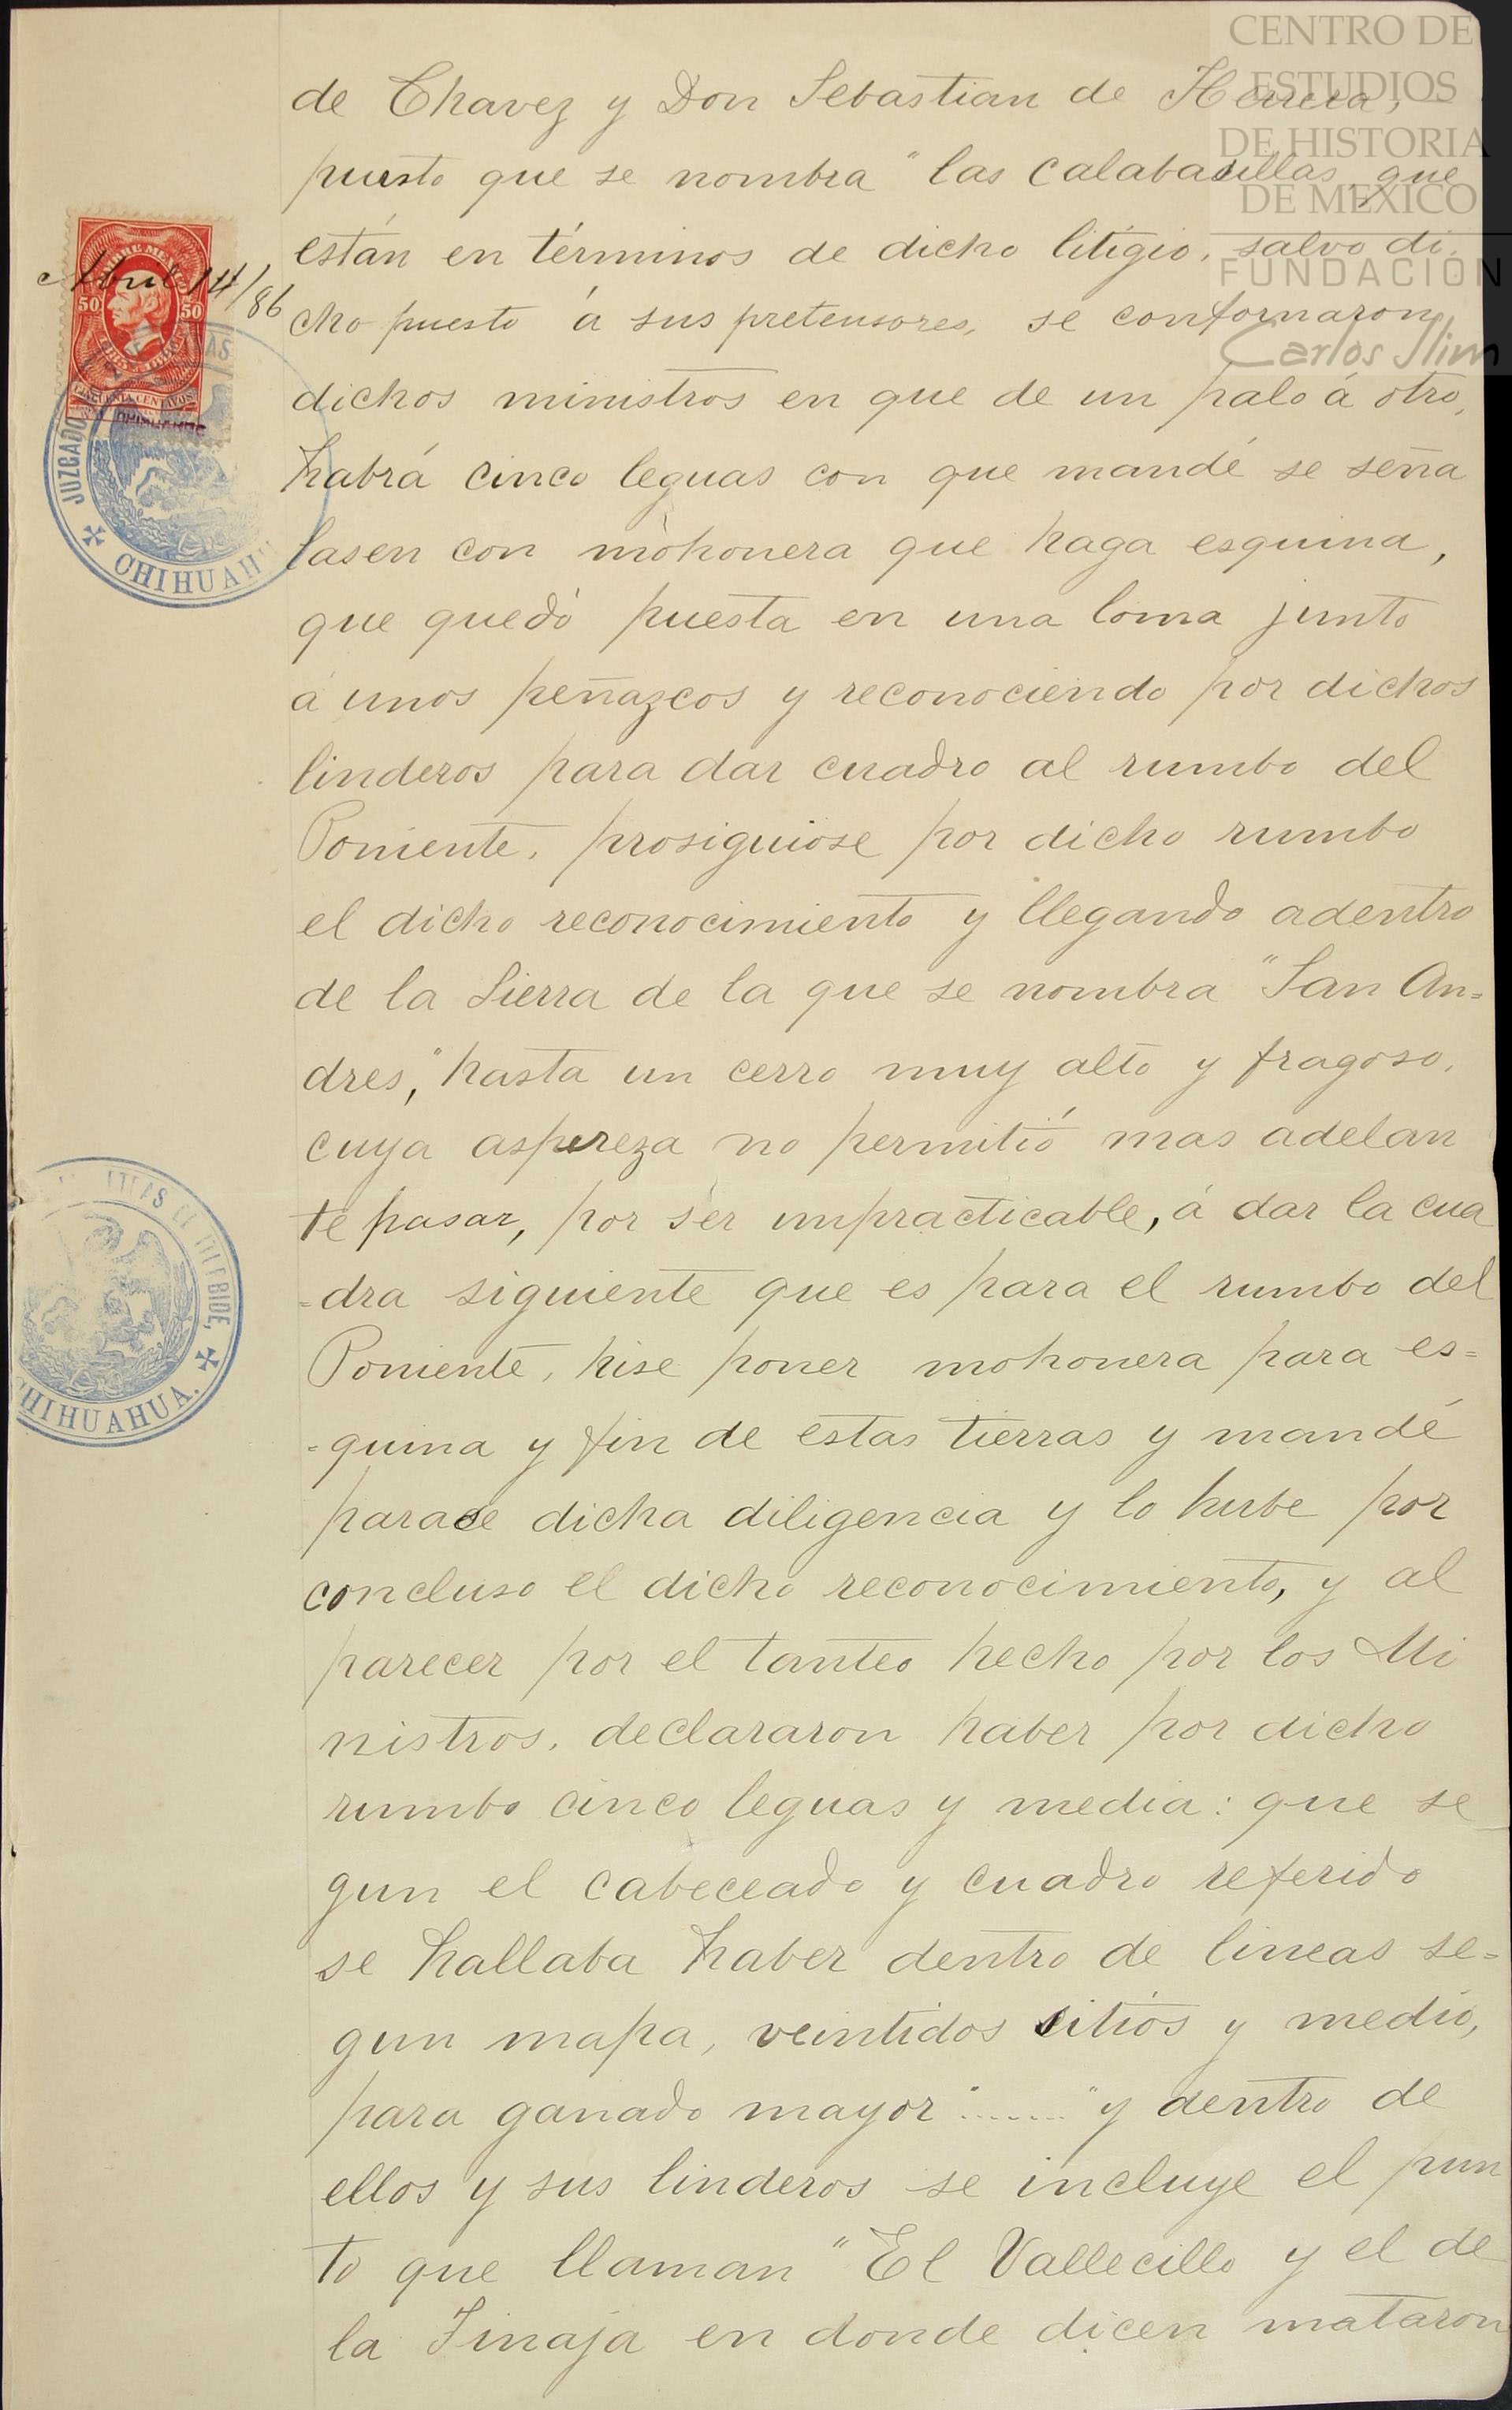 CENTRO DE
ESTUDIOS
DE HISTORIA
DE MEXICO
FUNDACIÓN
Carlos Slim
de Chavez y Don Sebastian de Herrera,
puesto que se nombra "las calabasillas, que
están en términos de dicho litigio, salvo di
cho puesto á sus pretensores, se conformaron
dichos ministros en que de un palo á otro,
habrá cinco leguas con que mandé se seña
lasen con mohonera que haga esquina,
que quedó puesta en una loma junto
á unos peñazcos y reconociendo por dichos
linderos para dar cuadro al rumbo del
Poniente, prosiguiose por dicho rumbo
el dicho reconocimiento y llegando adentro
de la Sierra de la que se nombra "San An=
dres," hasta un cerro muy alto y fragoso,
cuya aspereza no permitió mas adelan
te pasar, por sér impracticable, á dar la cua
=dra siguiente que es para el rumbo del
Poniente, hise poner mohonera para es=
=quina y fin de estas tierras y mandé
parase dicha diligencia y lo hube por
concluso el dicho reconocimiento, y al
parecer por el tanteo hecho por los Mi
nistros, declararon haber por dicho
rumbo cinco leguas y media: que se
gun el cabeceado y cuadro referido
se hallaba haber dentro de lineas se=
gun mapa, veintidos sitios y medio,
para ganado mayor "......." y dentro de
ellos y sus linderos se incluye el pun
to que llaman "El Vallecillo y el de
la Tinaja en donde dicen mataron
Abril 14/86
50 50
CINCUENTA CENTAVOS
CHIHUAHUA
JUZGADO
CHIHUAH
ITURBIDE,
CHIHUAHUA.